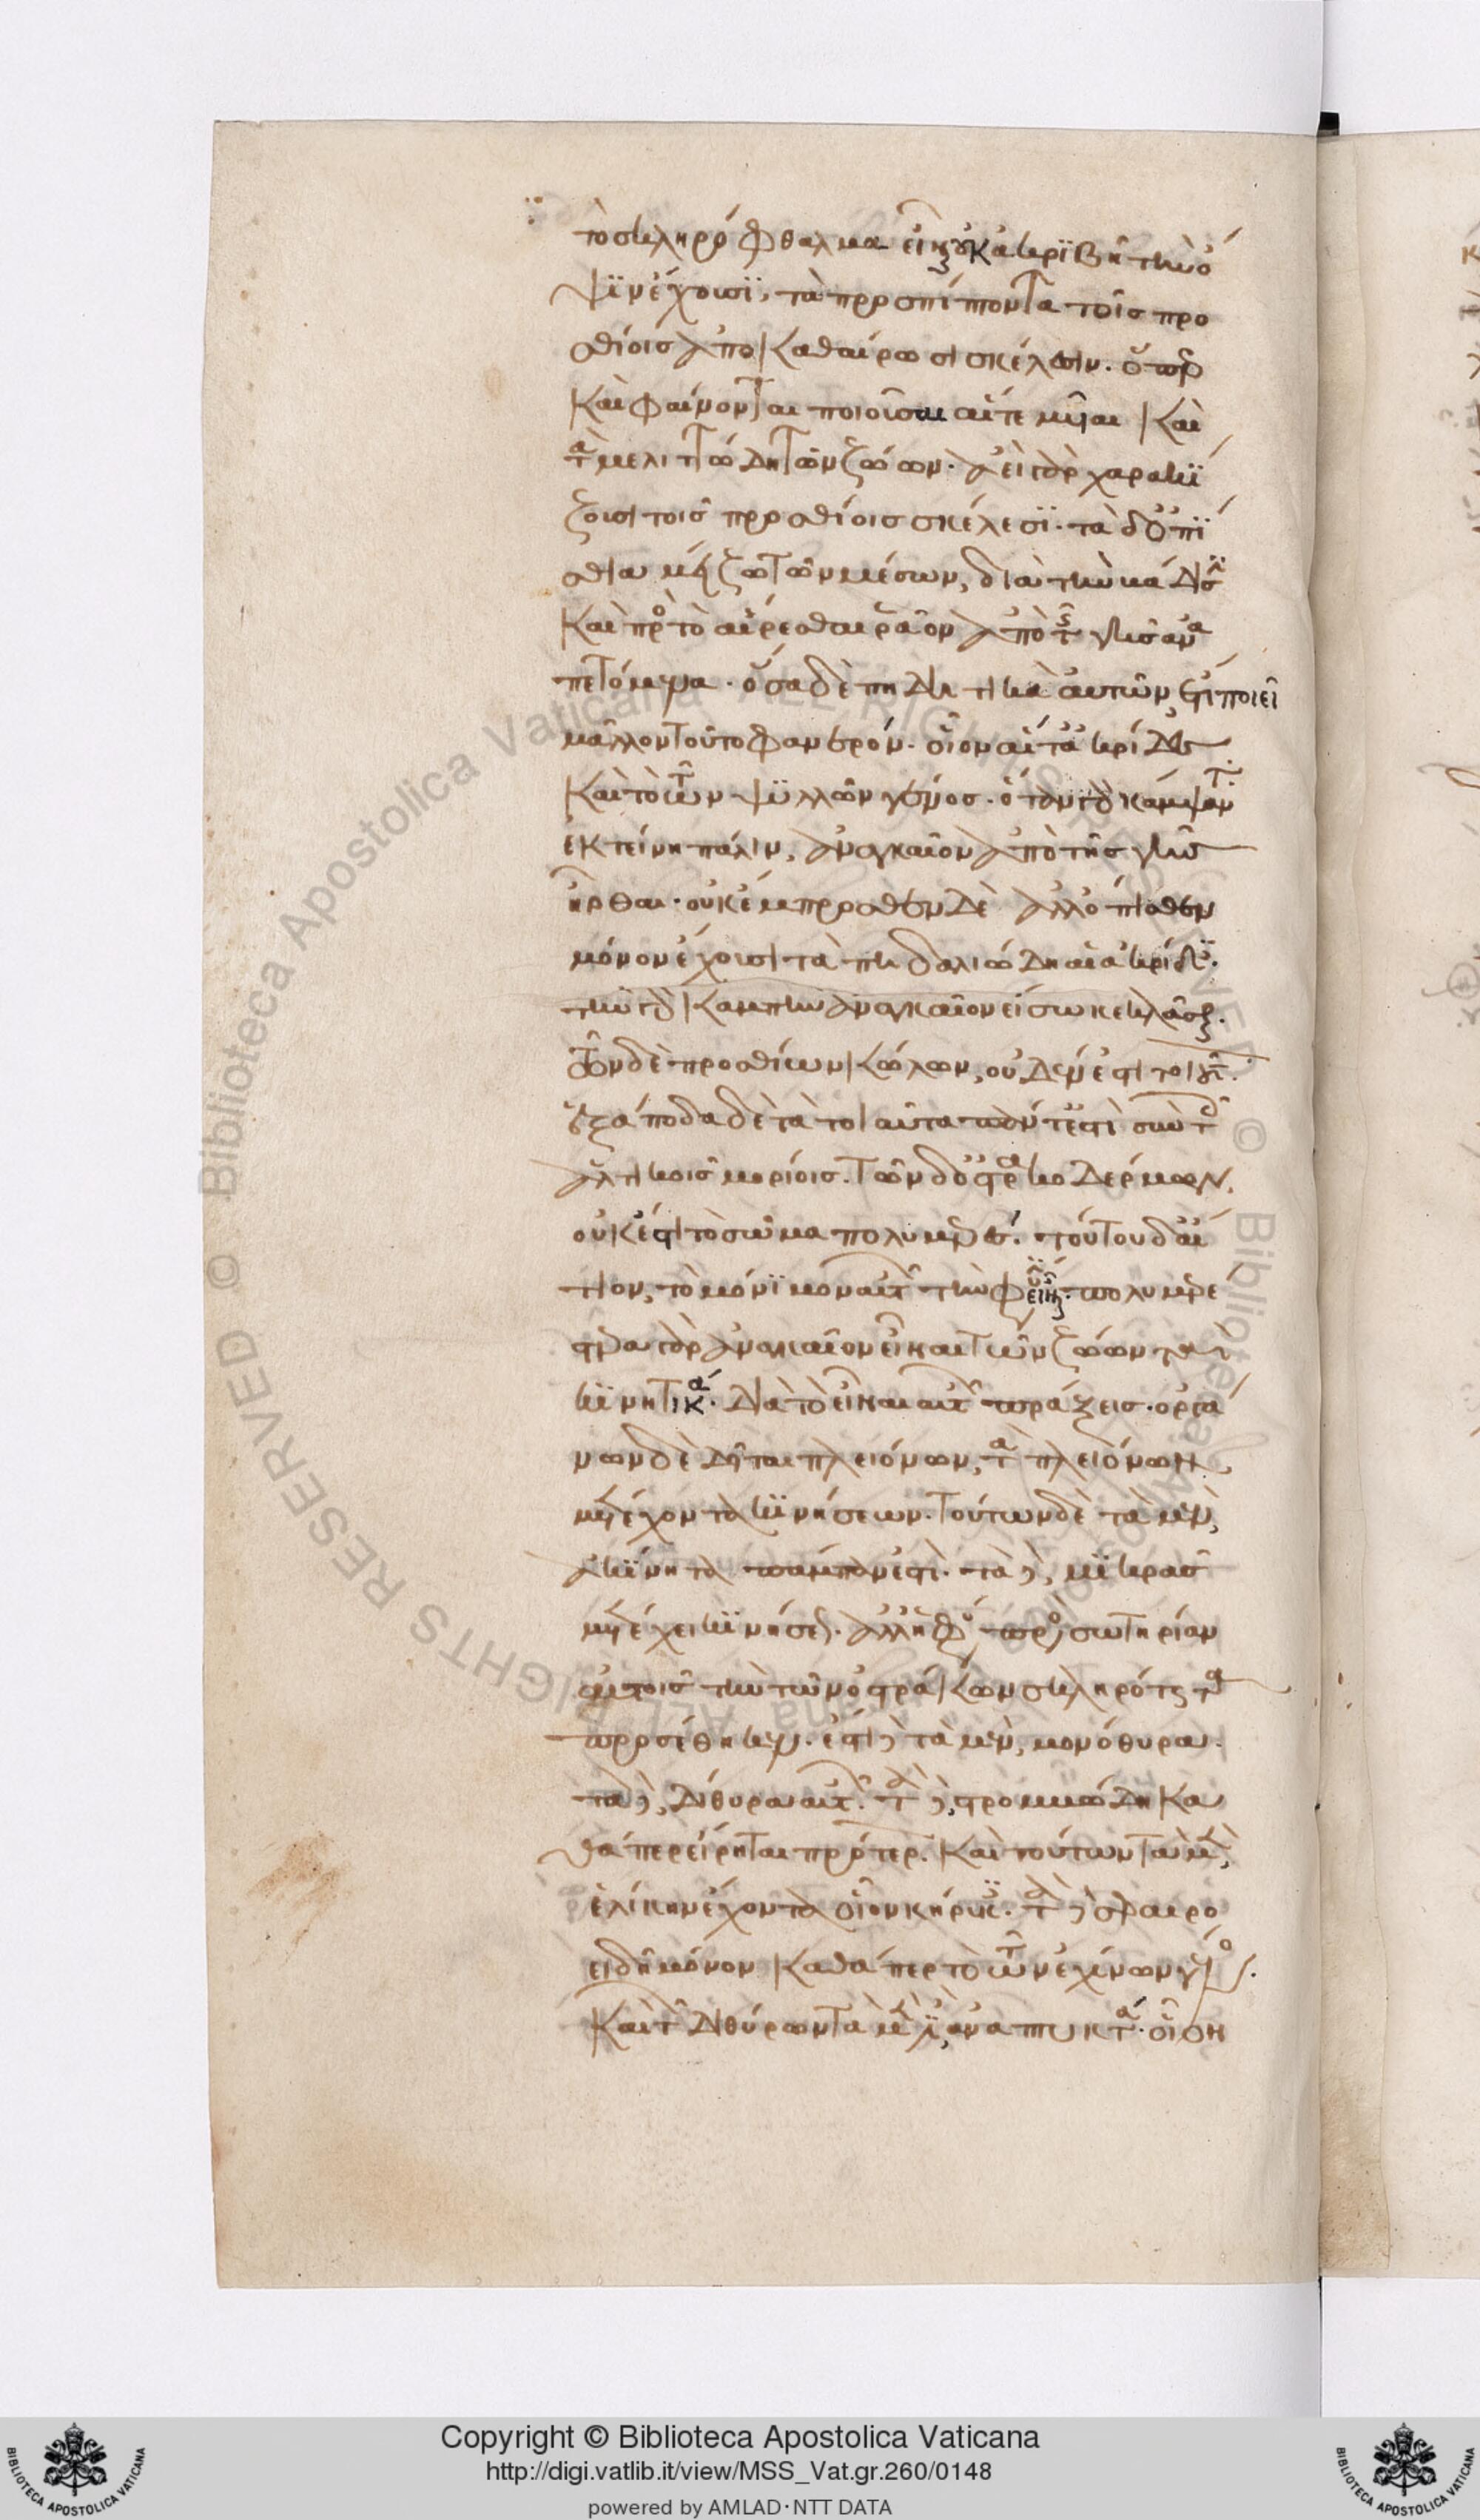 τὸ σκληρόφθαλμα εἶναι οὐκ ἀκριβῆ τὴν ὄ
ψιν ἔχουσι, τὰ προσπίπτοντα τοῖς προ
σθίοις ἀποκαθαίρωσι σκέλεσιν. ὅπερ
καὶ φαίνονται ποιοῦσαι αἵτε μυῖαι καὶ
τὰ μελιττώδη τῶν ζώων. ἀεὶ γὰρ χαρακί
ζουσι τοῖς προσθίοις σκέλεσι. τὰ δ' ὀπί
σθια μείζω τῶν μέσων, διά τε τὴν βάδισιν
καὶ πρὸς τὸ αἴρεσθαι ῥᾷον ἀπὸ τῆς γῆς ἀνα
πετόμενα. ὅσα δὲ πηδητικὰ αὐτῶν, ἔτι ποιεῖ
μᾶλλον τοῦτο φανερόν. οἷον αἵ τ' ἀκρίδες
καὶ τὸ τῶν ψυλλῶν γένος. ὅταν γὰρ κάμψαντα
ἐκτείνῃ πάλιν, ἀναγκαῖον ἀπὸ τῆς γῆς
ἦρθαι. οὐκ ἔμπροσθεν δὲ ἀλλ' ὄπισθεν
μόνον ἔχουσι τὰ πηδαλιώδη αἱ ἀκρίδες.
τὴν γὰρ καμπὴν ἀναγκαῖον εἴσω κεκλάσθαι.
τῶν δὲ προσθίων κώλων, οὐδέν ἐστι τοιοῦτον.
ἑξάποδα δὲ τὰ τοιαῦτα πάντ' ἐστὶ σὺν τοῖς
ἁλτικοῖς μορίοις. τῶν δ' ὀστρακοδέρμων
οὐκ ἔστι τὸ σῶμα πολυμερές. τούτου δ' αἴ
τιον, τὸ μόνιμον αὐτῶν τὴν φύσιν εἶναι. πολυμερέ
στερα γὰρ ἀναγκαῖον εἶναι τῶν ζώων τὰ
κινητικά. διὰ τὸ εἶναι αὐτῶν πράξεις. ὀργά
νων δὲ δεῖται πλειόνων, τὰ πλειόνων
μετέχοντα κινήσεων. τούτων δὲ τὰ μὲν,
ἀκίνητα πάμπαν ἐστί. τὰ δὲ, μικρᾶς
μετέχει κινήσεως. ἀλλ' ἡ φύσις πρὸς σωτηρίαν
αὐτοῖς τὴν τῶν ὀστράκων σκληρότητα
προσέθηκεν. ἔστι δὲ τὰ μὲν, μονόθυρα.
τὰ δὲ, δίθυρα αὐτῶν. τὰ δὲ, στρομβώδη κα
θάπερ εἴρηται πρότερον. καὶ τούτων τὰ μὲν,
ἑλίκην ἔχοντα οἷον κήρυκες. τὰ δὲ σφαιρο
ειδῆ μόνον καθάπερ τὸ τῶν ἐχίνων γένος.
καὶ τῶν διθύρων τὰ μέν ἐστιν ἀναπτυκτά. οἷον
Copyright © Biblioteca Apostolica Vaticana
http://digi.vatlib.it/view/MSS_Vat.gr.260/0148
powered by AMLAD·NTT DATA